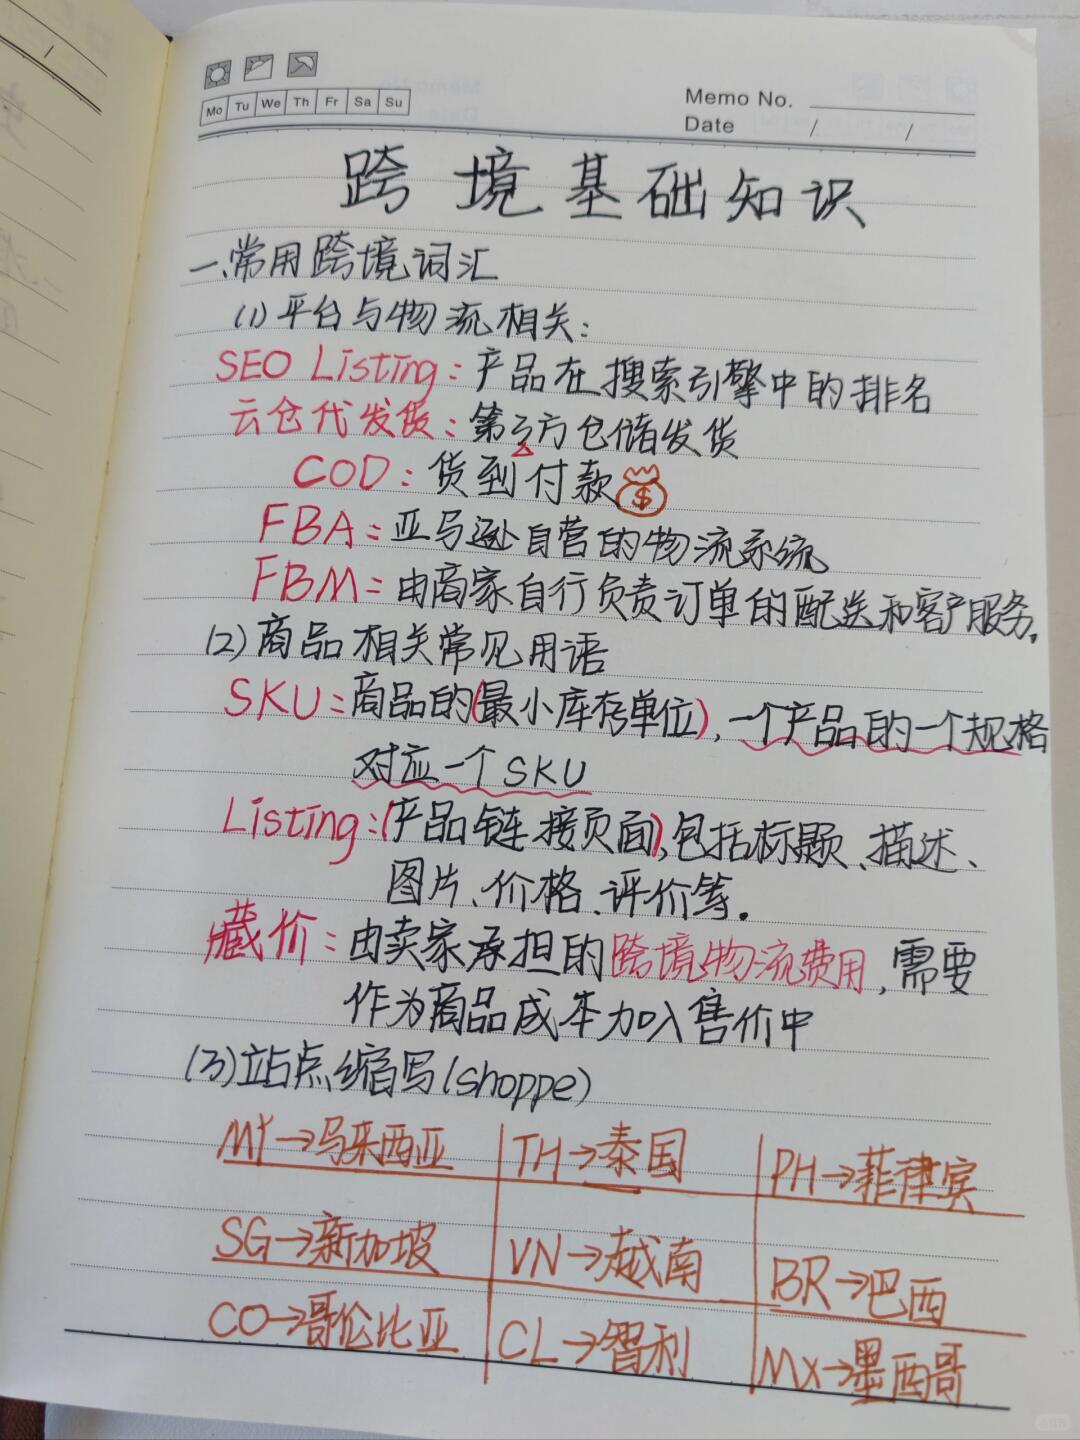 Mo Tu We Th Fr Sa Su
Memo No.
Date / /
跨境基础知识
一、常用跨境词汇
(1)平台与物流相关:
SEO Listing:产品在搜索引擎中的排名
云仓代发货:第三方仓储发货
COD:货到付款 $
FBA:亚马逊自营的物流系统
FBM:由商家自行负责订单的配送和客户服务.
(2)商品相关常见用语
SKU:商品的(最小库存单位),一个产品的一个规格
对应一个SKU
Listing:(产品链接页面),包括标题、描述、
图片、价格、评价等.
藏价:由卖家承担的跨境物流费用,需要
作为商品成本加入售价中
(3)站点缩写(shoppe)
MY→马来西亚 TH→泰国 PH→菲律宾
SG→新加坡 VN→越南 BR→巴西
CO→哥伦比亚 CL→智利 MX→墨西哥